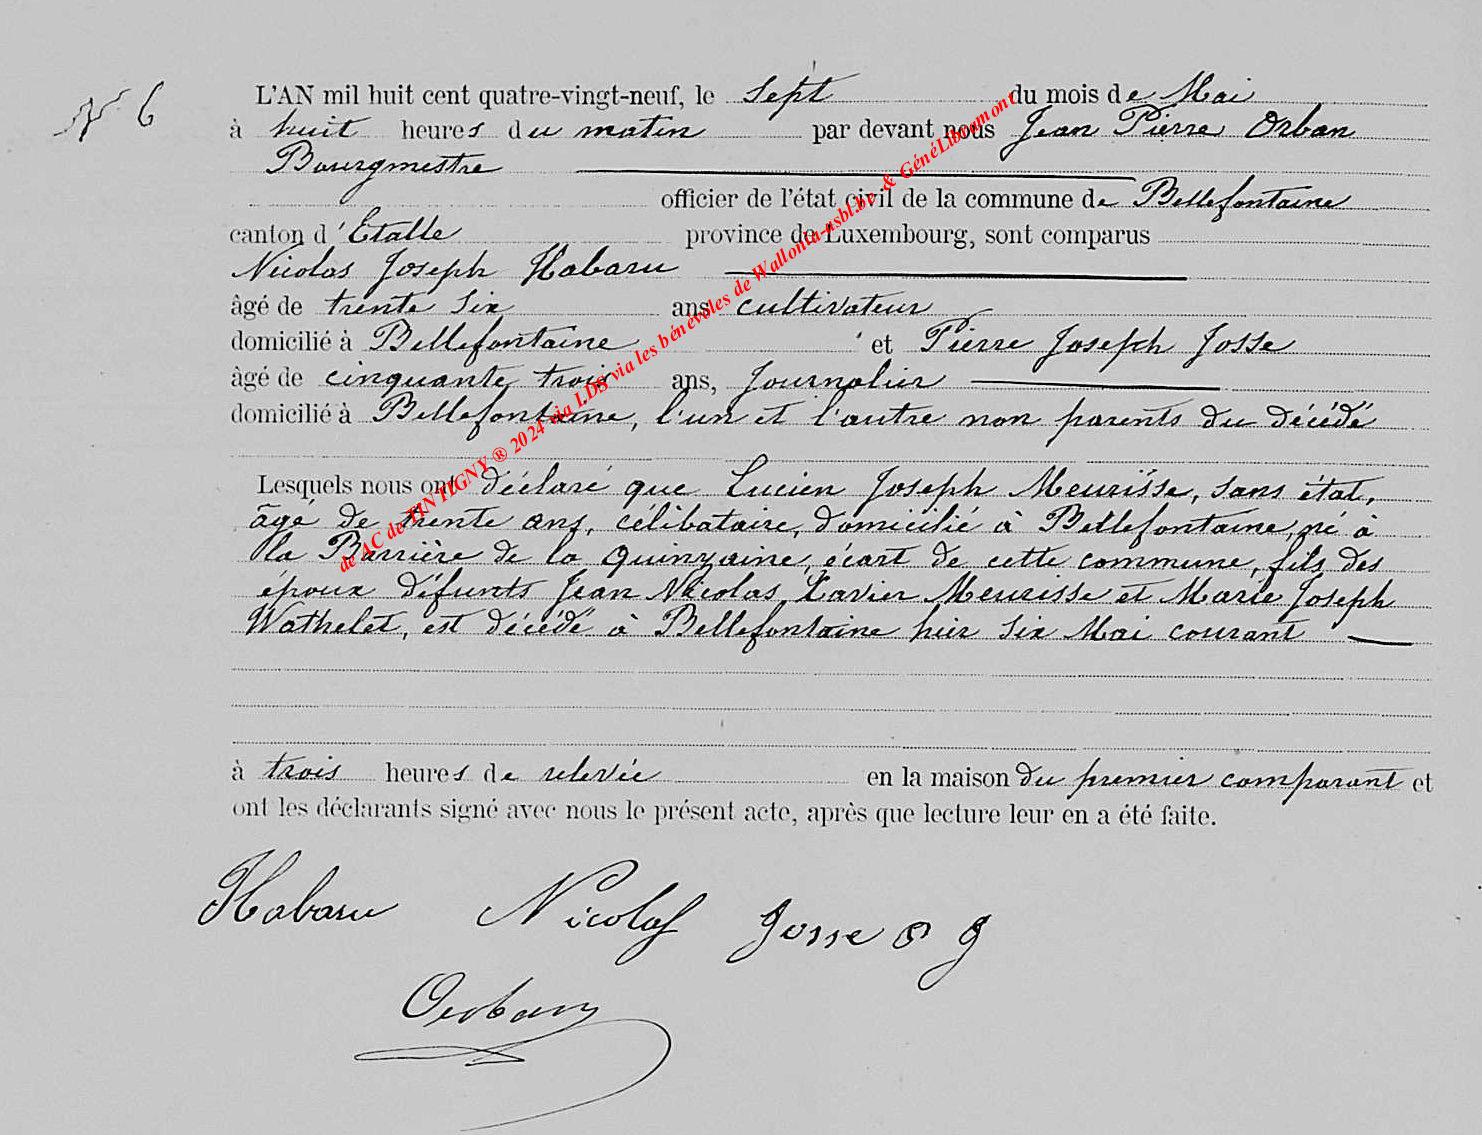 N° 6
L'AN mil huit cent quatre-vingt-neuf, le sept du mois de Mai
à huit heures du matin par devant nous Jean Pierre Orban
Bourgmestre
officier de l'état civil de la commune de Bellefontaine
canton d'Etalle province de Luxembourg, sont comparus
Nicolas Joseph Habaru
âgé de trente six ans cultivateur
domicilié à Bellefontaine et Pierre Joseph Josse
âgé de cinquante trois ans, Journalier
domicilié à Bellefontaine, l'un et l'autre non parents du décédé
Lesquels nous ont déclaré que Lucien Joseph Meurisse, sans état,
âgé de trente ans, célibataire, domicilié à Bellefontaine, né à
la Barrière de la Quinzaine, écart de cette commune, fils des
époux défunts Jean Nicolas Xavier Meurisse et Marie Joseph
Wathelet, est décédé à Bellefontaine hier six Mai courant
à trois heures de relevée en la maison du premier comparant et
ont les déclarants signé avec nous le présent acte, après que lecture leur en a été faite.
Habaru Nicolas Josse
Orban
de AC de TINTIGNY ® 2024 via LDS via les bénévoles de Wallonia-asbl.be & GénéLibramont